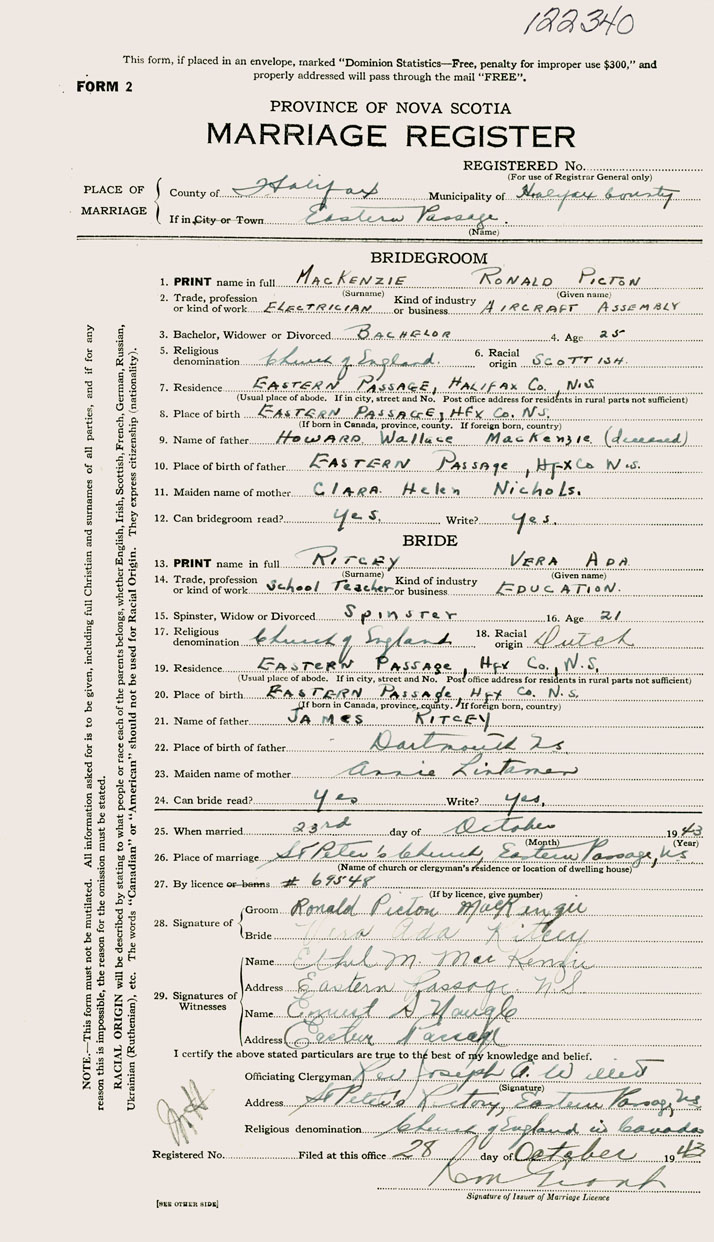 122340
This form, if placed in an envelope, marked “Dominion Statistics—Free, penalty for improper use $300,” and
properly addressed will pass through the mail “FREE”.
FORM 2
PROVINCE OF NOVA SCOTIA
MARRIAGE REGISTER
REGISTERED No.
(For use of Registrar General only)
PLACE OF MARRIAGE
County of Halifax Municipality of Halifax County
If in City or Town Eastern Passage.
(Name)
BRIDEGROOM
1. PRINT name in full MACKENZIE RONALD PICTON
(Surname) (Given name)
2. Trade, profession or kind of work ELECTRICIAN Kind of industry or business AIRCRAFT ASSEMBLY
3. Bachelor, Widower or Divorced BACHELOR 4. Age 25
5. Religious denomination Church of England. 6. Racial origin SCOTTISH.
7. Residence EASTERN PASSAGE, HALIFAX Co., N.S
(Usual place of abode. If in city, street and No. Post office address for residents in rural parts not sufficient)
8. Place of birth EASTERN PASSAGE, HFX Co. N.S.
(If born in Canada, province, county. If foreign born, country)
9. Name of father HOWARD Wallace MacKenzie (deceased)
10. Place of birth of father EASTERN Passage, HfxCo N.S.
11. Maiden name of mother CLARA Helen Nichols.
12. Can bridegroom read? yes. Write? yes.
BRIDE
13. PRINT name in full RITCEY VERA ADA
(Surname) (Given name)
14. Trade, profession or kind of work School Teacher Kind of industry or business EDUCATION.
15. Spinster, Widow or Divorced Spinster 16. Age 21
17. Religious denomination Church of England 18. Racial origin Dutch
19. Residence EASTERN PASSAGE, Hfx Co., N.S.
(Usual place of abode. If in city, street and No. Post office address for residents in rural parts not sufficient)
20. Place of birth EASTERN PASSAGE, Hfx Co. N.S.
(If born in Canada, province, county. If foreign born, country)
21. Name of father JAMES RITCEY
22. Place of birth of father Dartmouth Ns
23. Maiden name of mother Annie
24. Can bride read? yes Write? yes,
25. When married 23rd day of October 1943
(Month) (Year)
26. Place of marriage St Peter's Church, Eastern Passage, NS
(Name of church or clergyman's residence or location of dwelling house)
27. By licence or banns # 69548
(If by licence, give number)
28. Signature of
Groom Ronald Picton MacKenzie
Bride Vera Ada Ritcey
29. Signatures of Witnesses
Name Ethel M. MacKenzie
Address Eastern Passage N.S
Name Ernest D Naugle
Address Eastern Passage
I certify the above stated particulars are true to the best of my knowledge and belief.
Officiating Clergyman Rev Joseph A. Willett
(Signature)
Address St Peter's Rectory, Eastern Passage, NS
Religious denomination Church of England in Canada
Registered No. Filed at this office 28 day of October 1943
Signature of Issuer of Marriage Licence
[SEE OTHER SIDE]
NOTE.—This form must not be mutilated. All information asked for is to be given, including full Christian and surnames of all parties, and if for any
reason this is impossible, the reason for the omission must be stated.
RACIAL ORIGIN will be described by stating to what people or race each of the parents belongs, whether English, Irish, Scottish, French, German, Russian,
Ukrainian (Ruthenian), etc. The words “Canadian” or “American” should not be used for Racial Origin. They express citizenship (nationality).